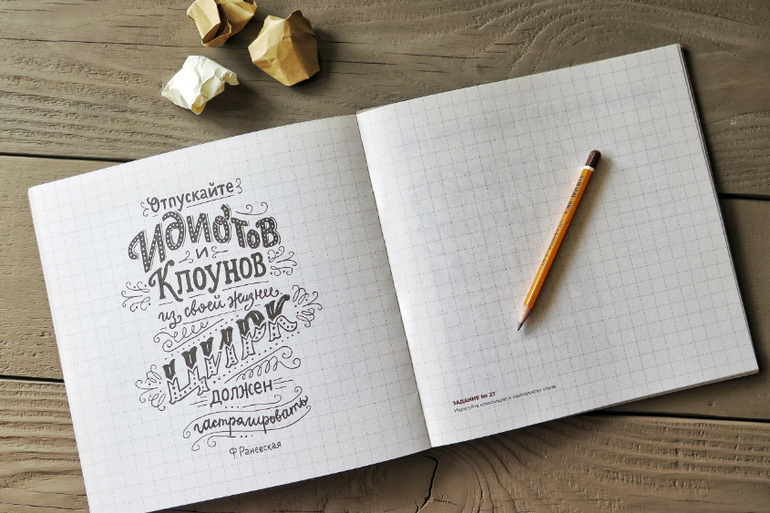 Отпускайте
Идиотов
и
Клоунов
из своей жизни
ЦИРК
должен
гастролировать
Ф.Раневская
ЗАДАНИЕ № 27